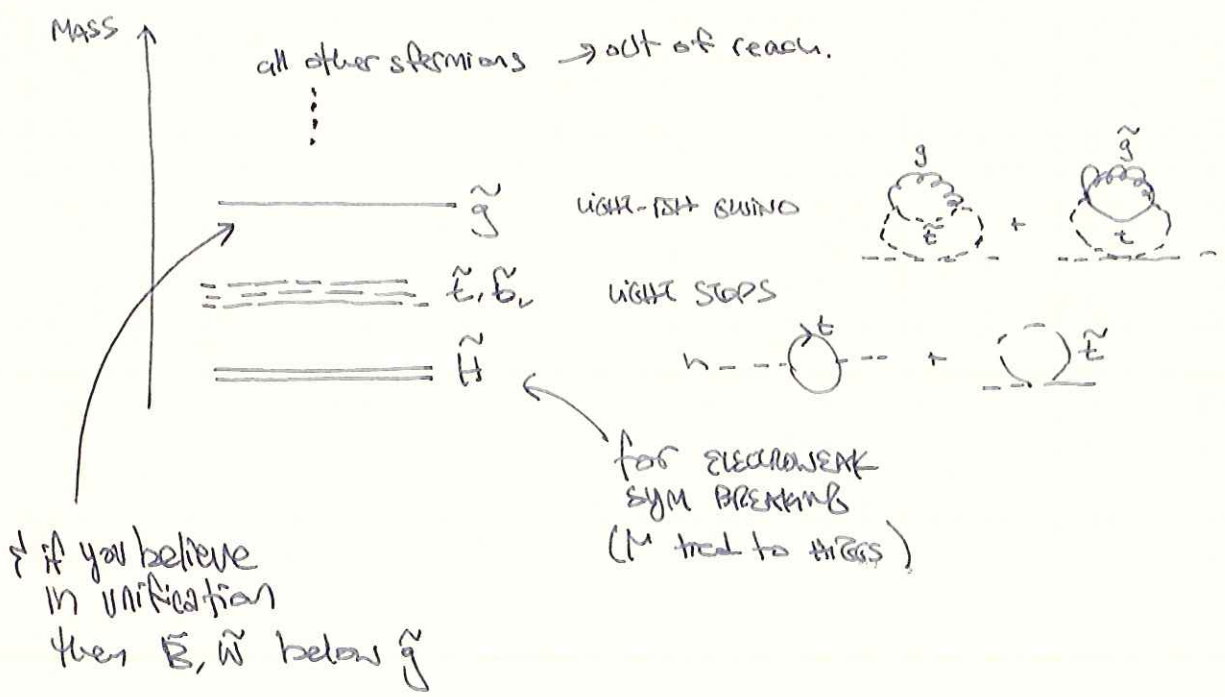 MASS
all other sfermions → out of reach.
g̃
LIGHT-ISH GLUINO
g
t̃
+
g̃
t
t̃, b̃L
LIGHT STOPS
H̃
h
t
+
t̃
for ELECTROWEAK
SYM BREAKING
(μ tied to HIGGS)
& if you believe
in unification
then B̃, W̃ below g̃